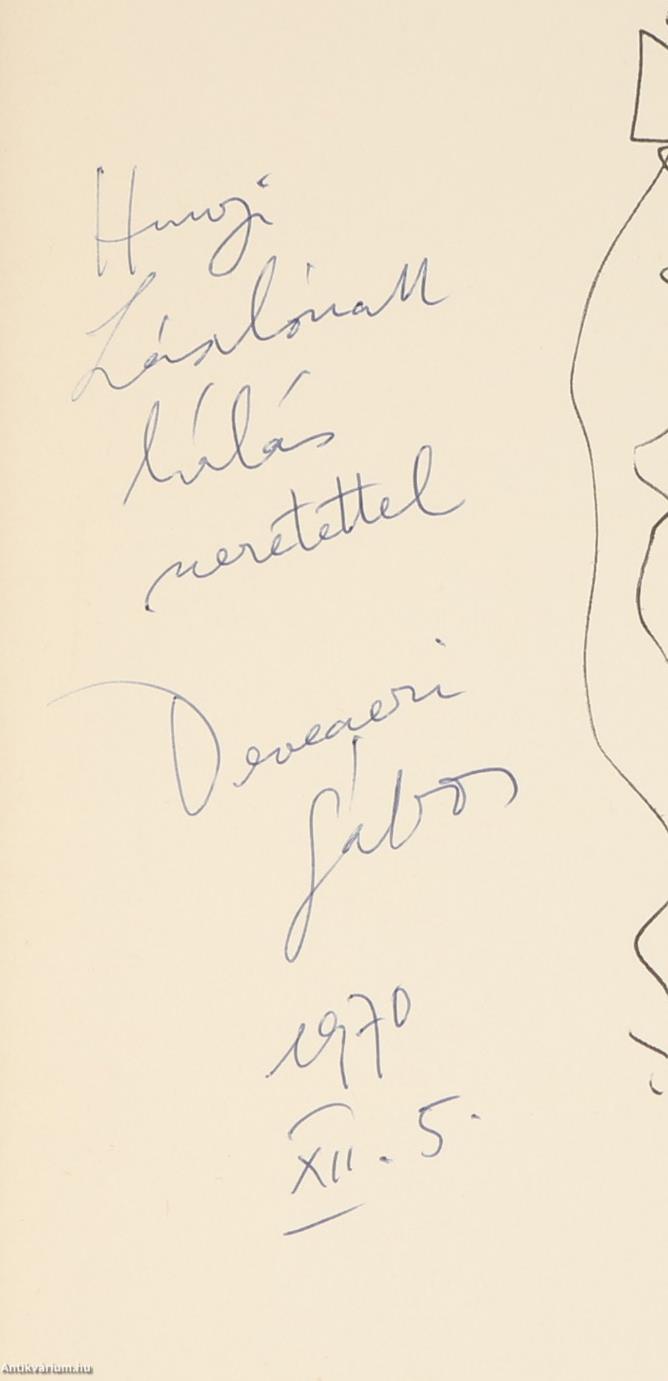 Lászlónak
hálás
szeretettel
Devecseri
Gábor
1970
XII. 5.
Antikvárium.hu